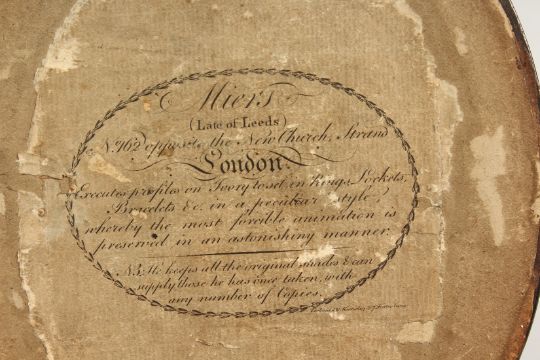 Miers
(Late of Leeds)
No. 162 opposite the New Church, Strand
London
Executes profiles on Ivory to set in Rings, Lockets,
Bracelets &c. in a peculiar style
whereby the most forcible animation is
preserved in an astonishing manner.
NB. He keeps all the original shades & can
supply those he has once taken, with
any number of Copies.